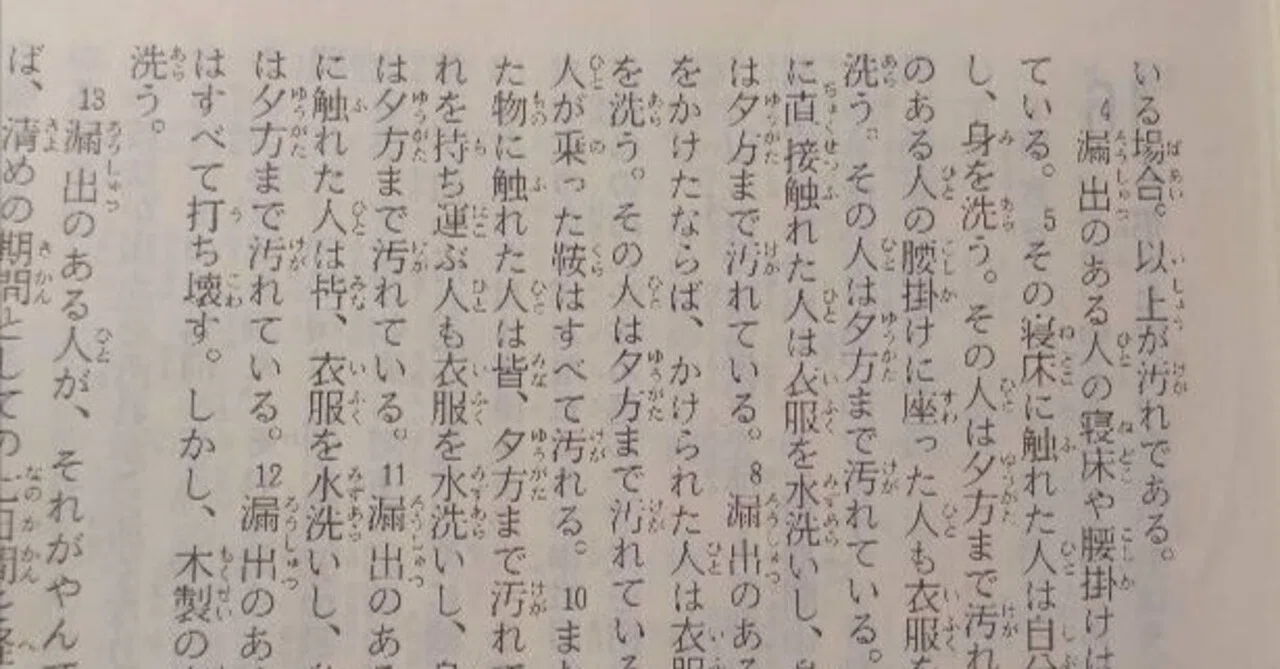 いる場合。以上が汚れである。
4 漏出のある人の寝床や腰掛けは
ている。 5 その寝床に触れた人は自分
し、身を洗う。その人は夕方まで汚れ
のある人の腰掛けに座った人も衣服を
洗う。その人は夕方まで汚れている。
に直接触れた人は衣服を水洗いし、身
は夕方まで汚れている。 8 漏出のある
をかけたならば、かけられた人は衣服
を洗う。その人は夕方まで汚れている
人が乗った鞍はすべて汚れる。 10 また
た物に触れた人は皆、夕方まで汚れ
れを持ち運ぶ人も衣服を水洗いし、身
は夕方まで汚れている。 11 漏出のある
に触れた人は皆、衣服を水洗いし、
は夕方まで汚れている。 12 漏出のあ
はすべて打ち壊す。しかし、木製の
洗う。
13 漏出のある人が、それがやんで
ば、清めの期間としての七日間を経